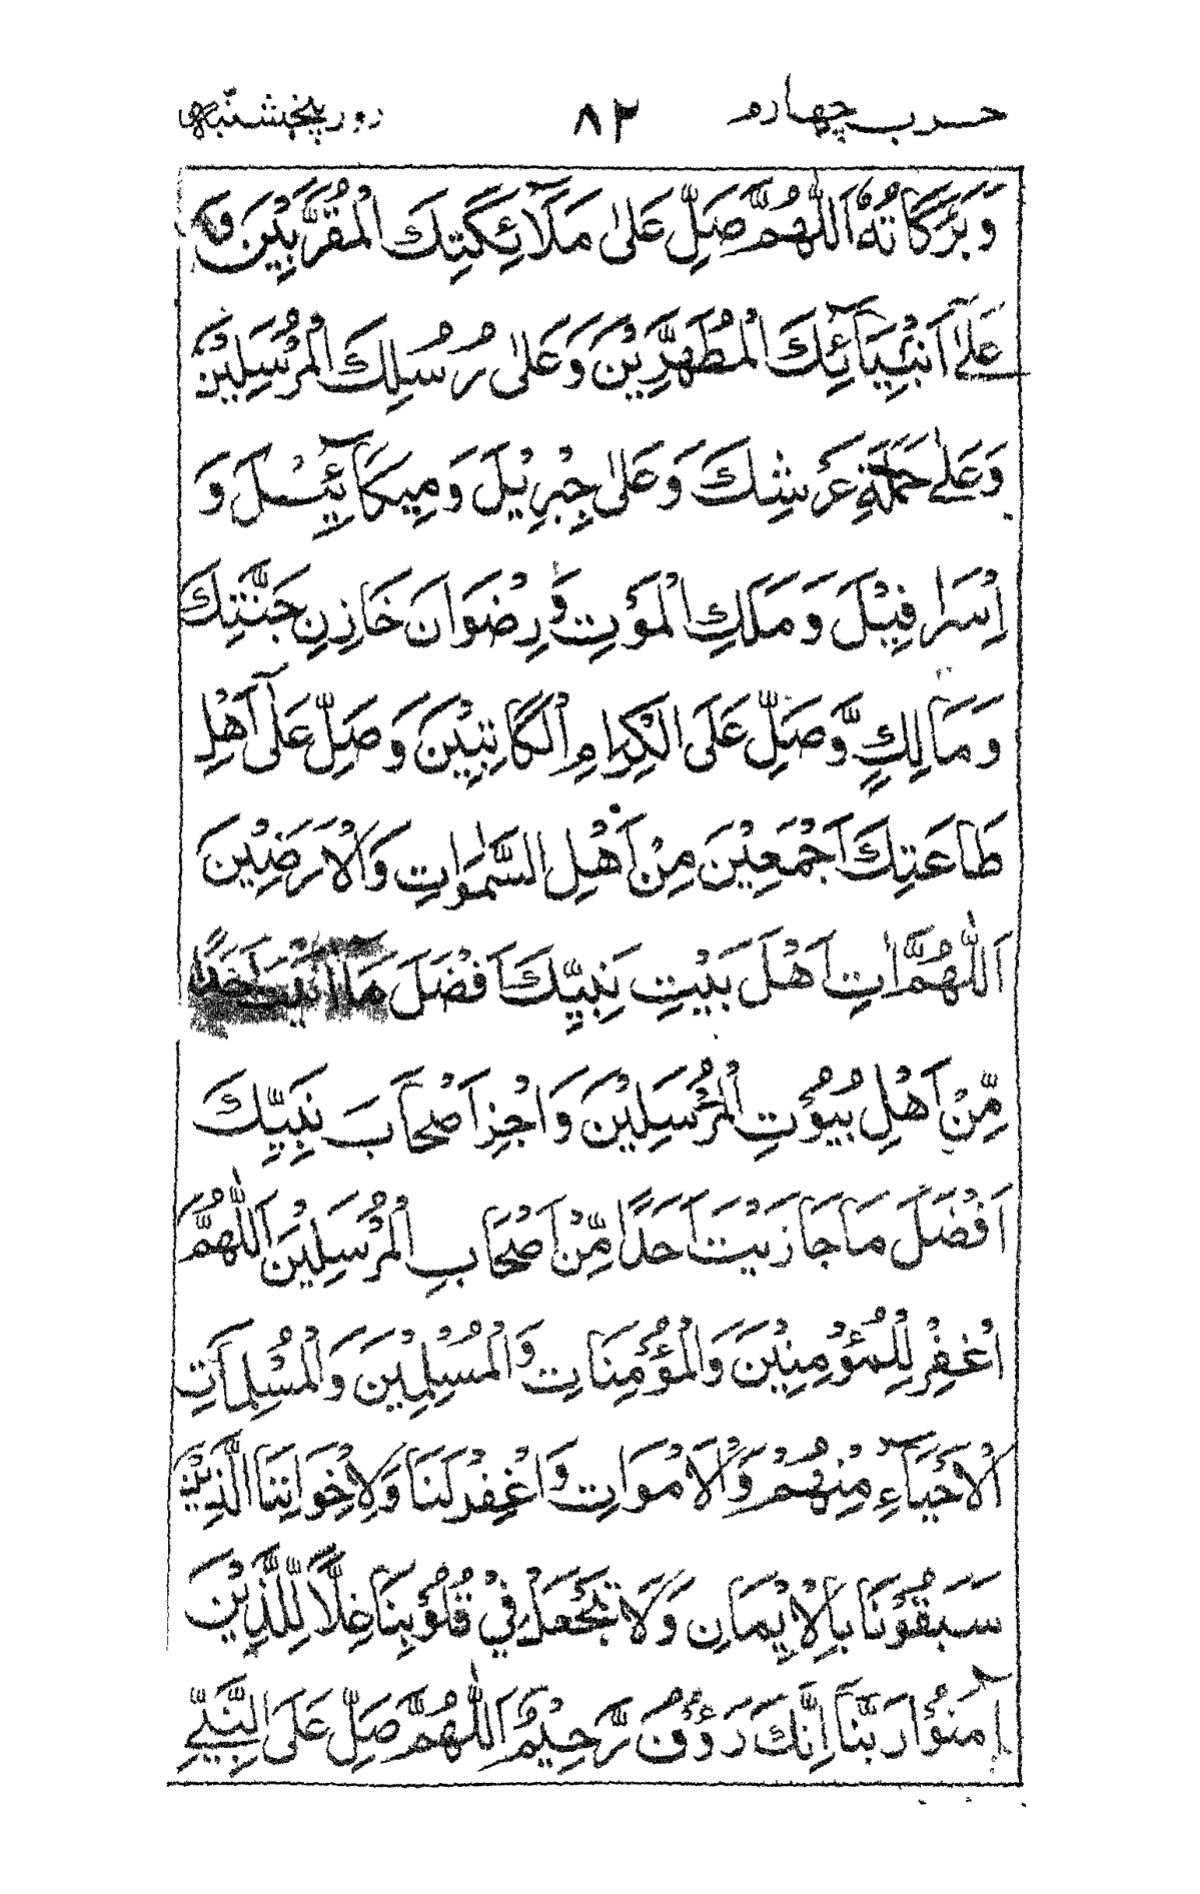 حزب چهارم ۸۲ روز پنجشنبه
وَبَرَكَاتُهُ اَللّٰهُمَّ صَلِّ عَلىٰ مَلَآئِكَتِكَ الْمُقَرَّبِيْنَ وَ
عَلىٰٓ اَنْبِيَآئِكَ الْمُطَهَّرِيْنَ وَعَلىٰ رُسُلِكَ الْمُرْسَلِيْنَ
وَعَلىٰ حَمَلَةِ عَرْشِكَ وَعَلىٰ جِبْرِيْلَ وَمِيكَآئِيْلَ وَ
اِسْرَافِيْلَ وَمَلَكِ الْمَوْتِ وَرِضْوَانَ خَازِنِ جَنَّتِكَ
وَمَالِكٍ وَّصَلِّ عَلَى الْكِرَامِ الْكَاتِبِيْنَ وَصَلِّ عَلىٰٓ اَهْلِ
طَاعَتِكَ اَجْمَعِيْنَ مِنْ اَهْلِ السَّمٰوَاتِ وَالْاَرَضِيْنَ
اَللّٰهُمَّ اٰتِ اَهْلَ بَيْتِ نَبِيِّكَ اَفْضَلَ مَآ اٰتَيْتَ اَحَدًا
مِّنْ اَهْلِ بُيُوْتِ الْمُرْسَلِيْنَ وَاجْزِ اَصْحَابَ نَبِيِّكَ
اَفْضَلَ مَا جَازَيْتَ اَحَدًا مِّنْ اَصْحَابِ الْمُرْسَلِيْنَ اَللّٰهُمَّ
اغْفِرْ لِلْمُؤْمِنِيْنَ وَالْمُؤْمِنَاتِ وَالْمُسْلِمِيْنَ وَالْمُسْلِمَاتِ
الْاَحْيَآءِ مِنْهُمْ وَالْاَمْوَاتِ وَاغْفِرْ لَنَا وَلِاِخْوَانِنَا الَّذِيْنَ
سَبَقُوْنَا بِالْاِيْمَانِ وَلَا تَجْعَلْ فِيْ قُلُوْبِنَا غِلًّا لِّلَّذِيْنَ
اٰمَنُوْا رَبَّنَآ اِنَّكَ رَؤُفٌ رَّحِيْمٌ اَللّٰهُمَّ صَلِّ عَلَى النَّبِيِّ